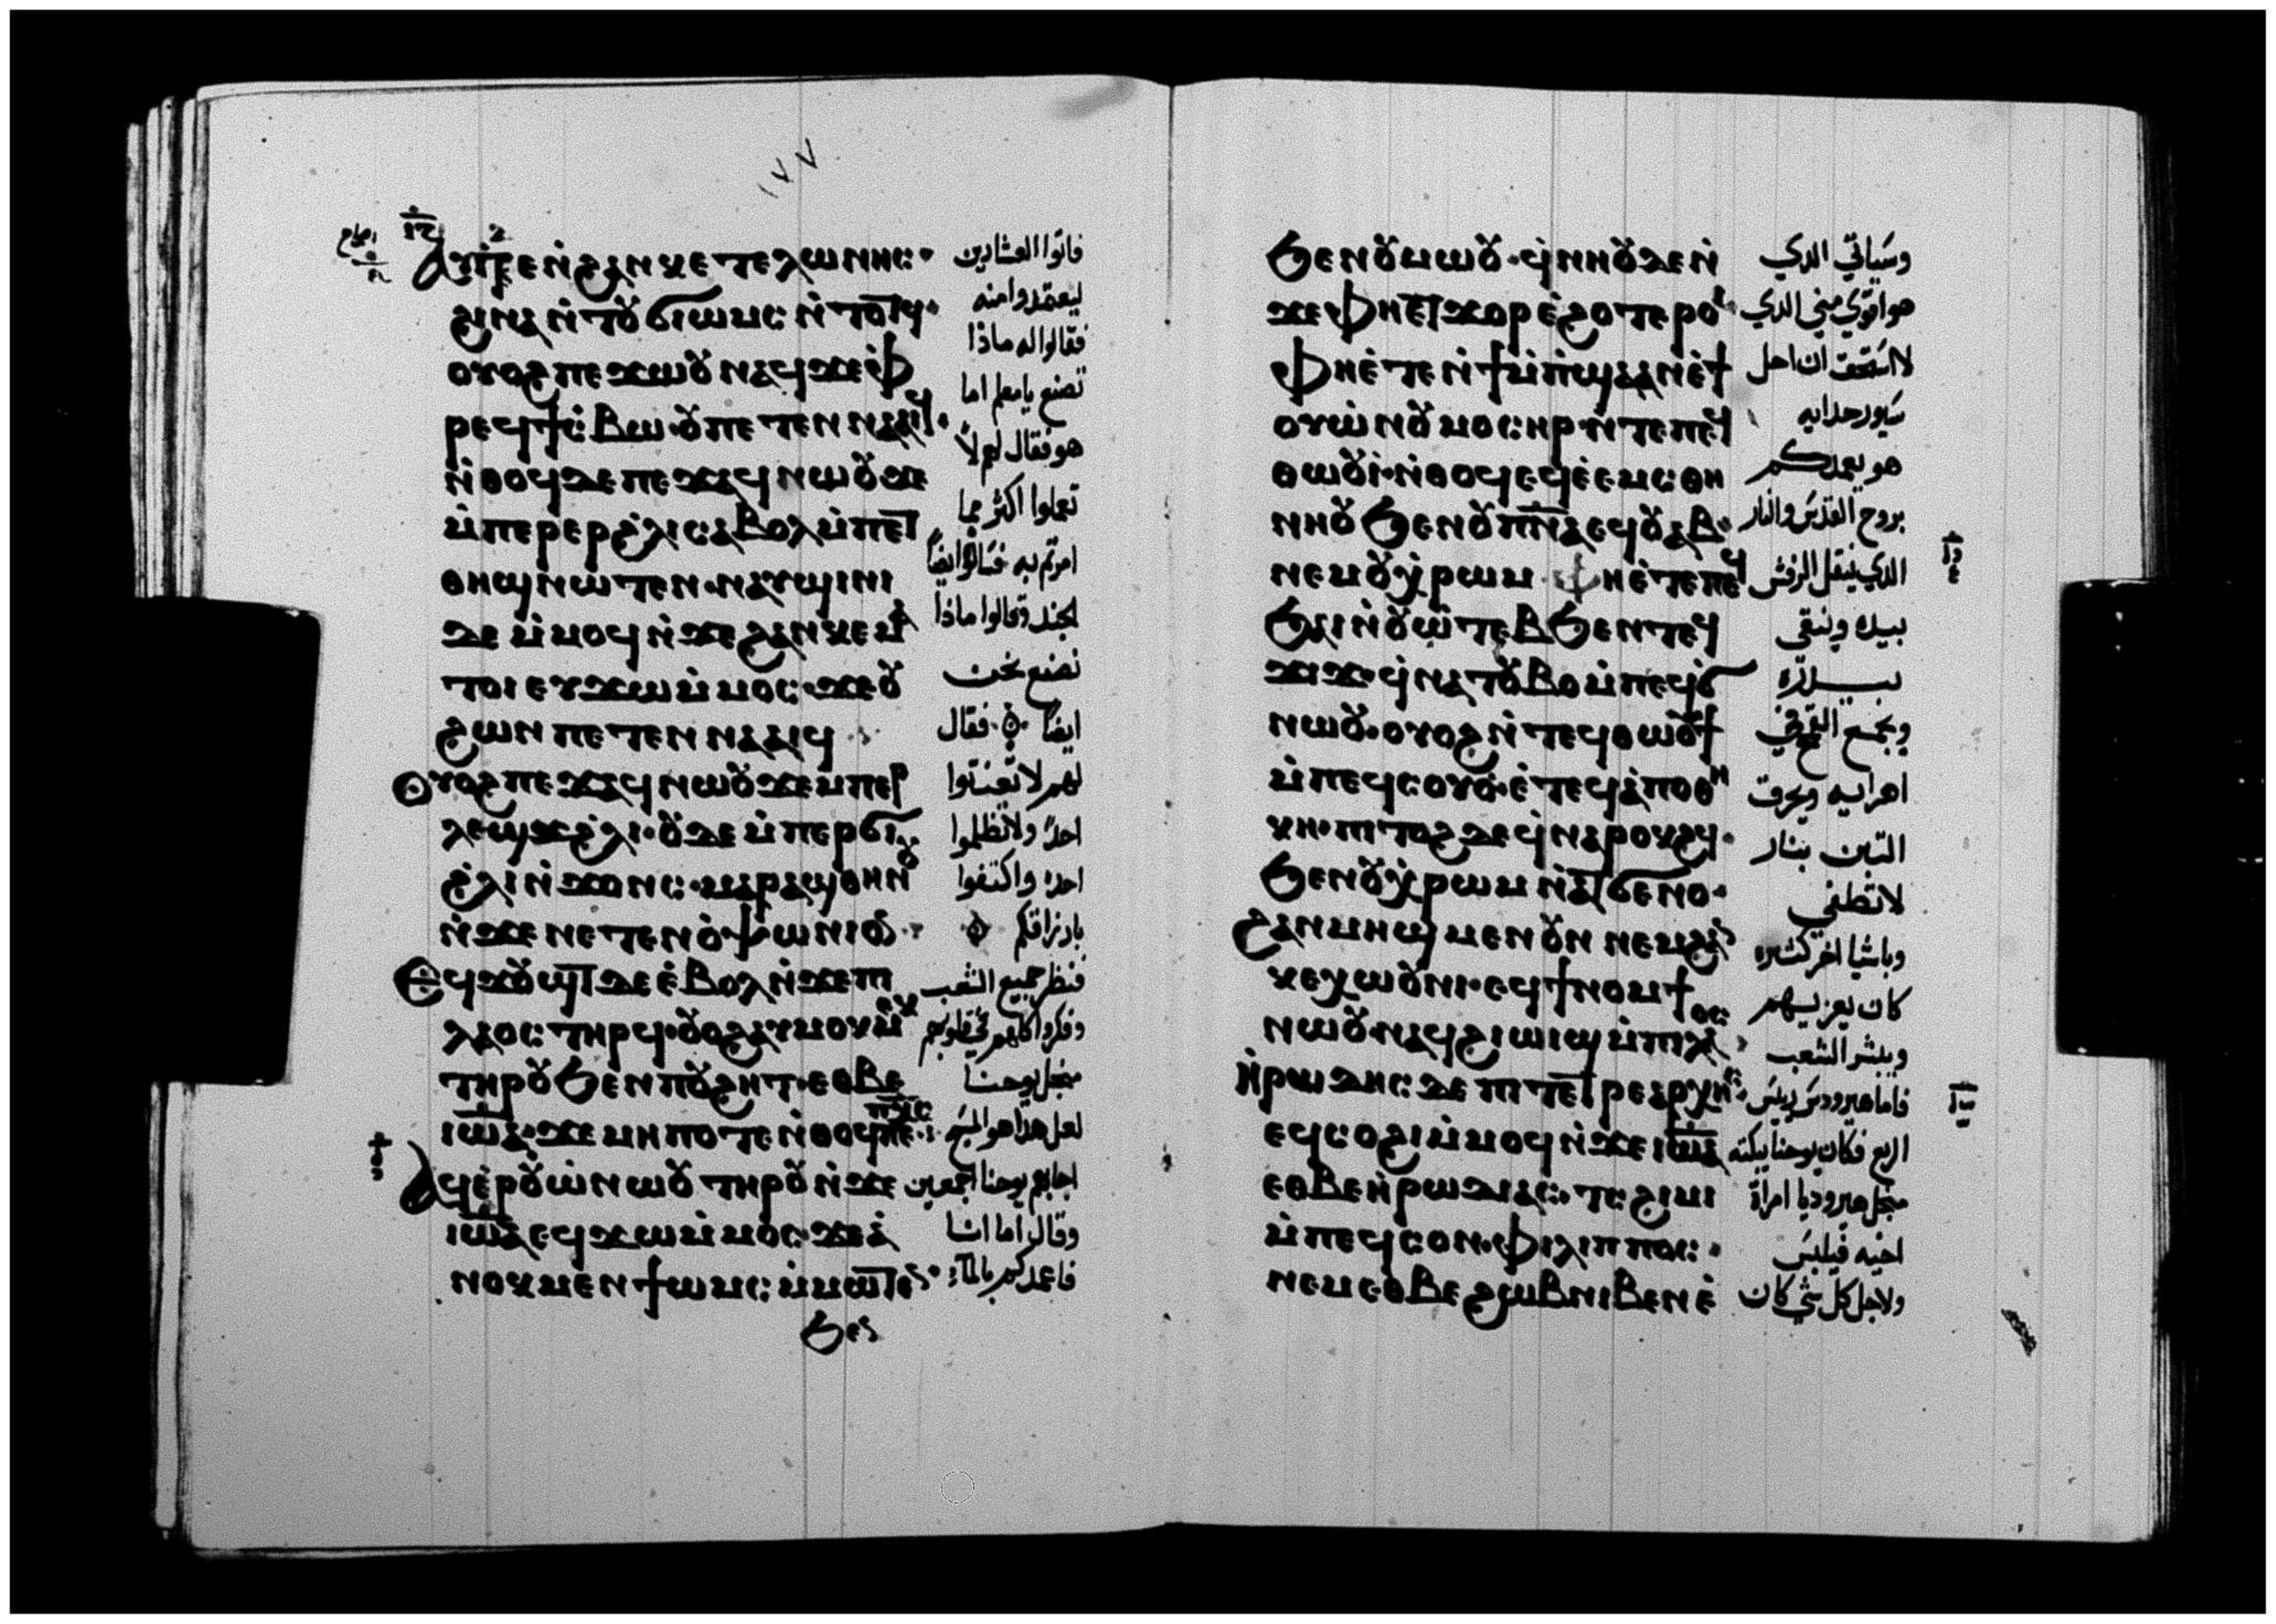 ١٧٧
ⲁⲩⲓ̀ⲇⲉ ⲛ̀ϩⲁⲛⲕⲉⲧⲉⲗⲱⲛⲏⲥ·
ϩⲓⲛⲁ ⲛ̀ⲧⲟⲩϭⲓⲱⲙⲥ ⲛ̀ⲧⲟⲧϥ·
ⲟⲩⲟϩ ⲡⲉϫⲱⲟⲩ ⲛⲁϥ ϫⲉ ⲫ
ⲣⲉϥϯⲥ̀ⲃⲱ·ⲟⲩ ⲡⲉⲧⲉⲛⲛⲁⲁⲓϥ·
ⲛ̀ⲑⲟϥ ⲇⲉ ⲡⲉϫⲁϥ ⲛⲱⲟⲩ ϫⲉ
ⲙ̀ⲡⲉⲣⲉⲣϩ̀ⲗⲓ ⲥⲁⲃⲟⲗ ⲙ̀ⲡⲉⲧ
ⲑⲏϣ ⲛⲱⲧⲉⲛ·ⲛⲁⲩϣⲓⲛⲓ
ⲇⲉ ⲙ̀ⲙⲟϥ ⲛ̀ϫⲉ ϩⲁⲛⲕⲉⲙⲁ
ⲧⲟⲓ ⲉⲩϫⲱ ⲙ̀ⲙⲟⲥ·ϫⲉ ⲟⲩ
ϩⲱⲛ ⲡⲉⲧⲉⲛⲛⲁⲁⲓϥ
ⲟⲩⲟϩ ⲡⲉϫⲁϥ ⲛⲱⲟⲩ ϫⲉ ⲙ̀ⲡⲉⲣ
ⲗⲉϣϫⲉ ϩ̀ⲗⲓ·ⲟⲩⲇⲉ ⲙ̀ⲡⲉⲣϭⲓ
ϩ̀ⲗⲓ ⲛ̀ϫⲟⲛⲥ·ⲙⲁⲣⲁϣⲑⲏⲛⲟⲩ
ⲛ̀ϫⲉ ⲛⲉⲧⲉⲛⲟ̀ⲯⲱⲛⲓⲟⲛ
ⲉϥϫⲟⲩϣⲧ ⲇⲉ ⲉ̀ⲃⲟⲗ ⲛ̀ϫⲉ ⲡⲓ
ⲗⲁⲟⲥ ⲧⲏⲣϥ·ⲟⲩⲟϩ ⲁⲩⲙⲟⲕⲙⲉⲕ
ⲧⲏⲣⲟⲩ ϧⲉⲛ ⲡⲟⲩϩⲏⲧ·ⲉⲑⲃⲉ
ⲓⲱⲁ·ϫⲉ ⲙⲏⲡⲟⲧⲉ ⲛ̀ⲑⲟϥ ⲡⲉ ⲡⲭⲥ
ⲁϥⲉ̀ⲣⲟⲩⲱ̀ ⲛⲱⲟⲩ ⲧⲏⲣⲟⲩ ⲛ̀ϫⲉ
ⲓⲱⲁ ⲉϥϫⲱ ⲙ̀ⲙⲟⲥ·ϫⲉ ⲁ̀
ⲛⲟⲕ ⲙⲉⲛ ϯⲱⲙⲥ ⲙ̀ⲙⲱⲧⲉⲛ·
ϧⲉⲛ
فاتوا العشارين
ليعتمدوا منه
فقالوا له ماذا
نصنع يا معلم اما
هو فقال لهم لا
تعملوا اكثر مما
امرتم به فسالوا ايضا
الجند وقالوا ماذا
نصنع نحن
ايضا فقال
لهم لا تعنتوا
احدا ولا تظلموا
احدا واكتفوا
بارزاقكم
فنظر جميع الشعب
وفكروا كلهم في قلوبهم
من اجل يوحنا
لعل هذا هو المسيح
اجابهم يوحنا اجمعين
وقال اما انا
فاعمدكم بالماء
ϧⲉⲛ ⲟⲩⲙⲱⲟⲩ·ϥ̀ⲛⲏⲟⲩ ⲇⲉ ⲛ̀
ϫⲉ ⲫⲏⲉⲧϫⲟⲣ ⲉ̀ϩⲟⲧⲉⲣⲟⲓ·
ⲫⲏⲉ̀ⲧⲉ ⲛ̀ϯⲙ̀ⲡ̀ϣⲁ ⲁⲛ ⲉ̀ϯ
ⲟⲩⲱ̀ ⲛ̀ⲟⲩⲙⲟⲥⲏⲣ·ⲛ̀ⲧⲉ ⲡⲉϥ
ⲑⲱⲟⲩⲓ̀·ⲛ̀ⲑⲟϥ ⲉϥⲉ̀ⲉⲙⲥ ⲑⲏ
ⲛⲏⲟⲩ ϧⲉⲛ ⲟⲩⲡⲛⲁ ⲉϥⲟⲩⲁⲃ·
ⲛⲉⲙ ⲟⲩⲭ̀ⲣⲱⲙ ⲫⲏⲉ̀ⲧⲉ ⲡⲉϥ
ϧⲁⲓ ⲛ̀ⲟⲩⲱ̀ⲧⲉⲃ ϧⲉⲛ ⲧⲉϥ
ϫⲓϫ·ϥ̀ⲛⲁⲧⲟⲩⲃⲟ ⲙ̀ⲡⲉϥϭ
ⲛⲱⲟⲩ·ⲟⲩⲟϩ ⲛ̀ⲧⲉϥⲑⲱⲟⲩϯ
ⲙ̀ⲡⲉϥⲥⲟⲩⲟ·ⲉ̀ⲧⲉϥⲁ̀ⲡⲟⲑⲏ
ⲕⲏ·ⲡⲓⲧⲟϩ ⲇⲉ ϥ̀ⲛⲁⲣⲟⲕϩϥ·
ϧⲉⲛ ⲟⲩⲭ̀ⲣⲱⲙ ⲛ̀ⲁⲧϭⲉⲛⲟ·
ϩⲁⲛⲙⲏϣ ⲙⲉⲛ ⲟⲩⲛ ⲛⲉⲙ ϩⲁⲛ
ⲕⲉⲭⲱⲟⲩⲛⲓ·ⲉϥϯⲛⲟⲙϯ
ⲛⲱⲟⲩ·ⲛⲁϥϩⲓⲱⲓϣ ⲙ̀ⲡⲓⲗⲁⲟⲥ
ⲏ̀ⲣⲱⲇⲏⲥ ⲇⲉ ⲡⲓⲧⲉⲧⲣⲉⲁⲣⲭⲏⲥ·
ⲉϥⲥⲟϩⲓ ⲙ̀ⲙⲟϥ ⲛ̀ϫⲉ ⲓⲱⲁ
ⲉⲑⲃⲉ ⲏ̀ⲣⲱⲇⲓⲁⲥ·ⲧ̀ⲥϩⲓⲙⲓ
ⲙ̀ⲡⲉϥⲥⲟⲛ·ⲫⲓⲗⲓⲡⲡⲟⲥ·
ⲛⲉⲙ ⲉⲑⲃⲉ ϩⲱⲃ ⲛⲓⲃⲉⲛ ⲉ̀
وسياتي الدي
هو اقوي مني الدي
لا استحق ان احل
سيور حدايه
هو يعمدكم
بروح القدس والنار
الدي ينقل الرفش
بيده وينقي
بيدره
ويجمع القمح في
اهرايه ويحرق
التبن بنار
لا تطفي
وباشيا اخر كثيره
كان يعزيهم
ويبشر الشعب
فاما هيرودس رييس
الربع فكان يوحنا يبكته
من اجل هيروديا امراة
اخيه فيلبس
ولاجل كل شي كان